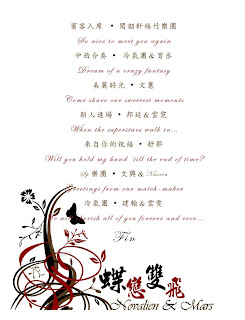 賓客入席 • 闖韻軒絲竹樂團
So nice to meet you again
中西合奏 • 冷氣團&育丞
Dream of a crazy fantasy
美麗時光 • 文蕙
Come share our sweetest moments
新人進場 • 邦廷&雲霓
When the superstars walk in...
來自你的祝福 • 舒郁
Will you hold my hand 'till the end of time?
樂團 • 文興&
Greetings from one match-maker
冷氣團 • 建翰&雲霓
cherish all of you forever and ever...
Fin
蝶戀雙飛
Novalien & Mars